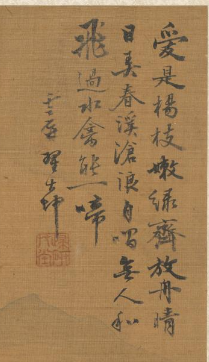 愛是楊枝嫩綠齊放舟晴
日弄春溪滄浪自唱無人和
飛過水禽能一啼